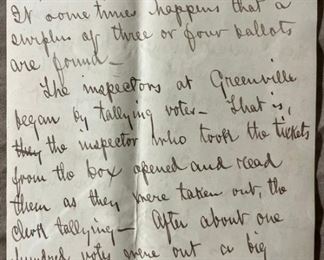 It some times happens that a
surplus of three or four ballots
are found—
The inspectors at Greenville
began by tallying votes— That is,
they the inspector who took the tickets
from the box opened and read
them as they were taken out, the
clerk tallying— After about one
hundred votes were out a big